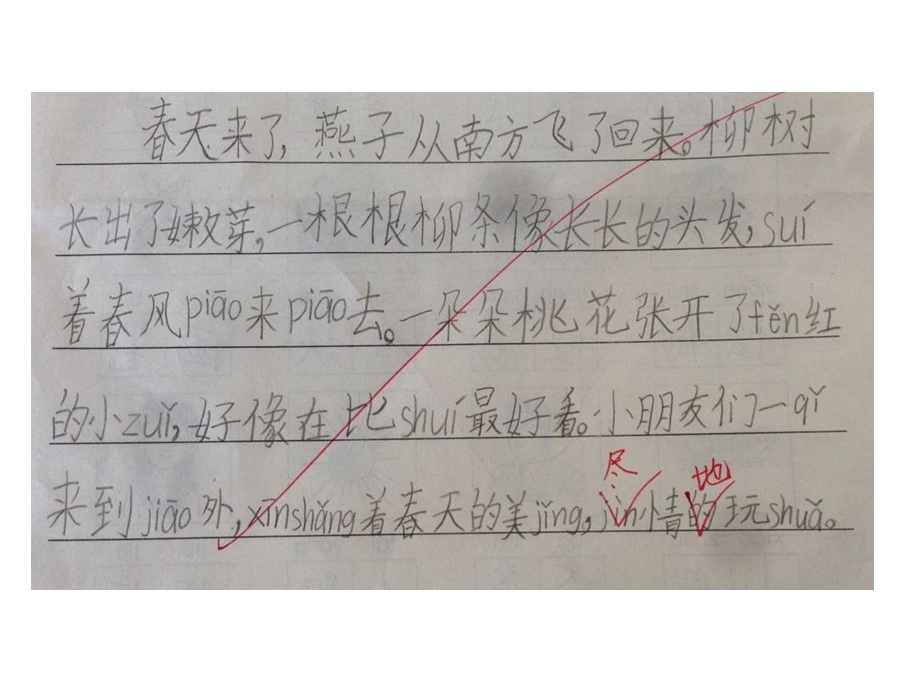 春天来了,燕子从南方飞了回来。柳树
长出了嫩芽,一根根柳条像长长的头发,suí
着春风piāo来piāo去。一朵朵桃花张开了fěn红
的小zuǐ,好像在比shuí最好看。小朋友们一qǐ
尽 地
来到jiāo外,xīnshǎng着春天的美jǐng,jìn情的玩shuǎ。